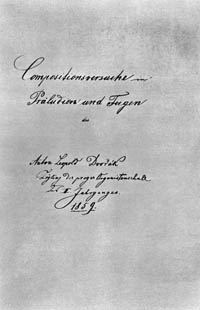 Compositionsversuche in
Präludien und Fugen
des
Anton Leopold Dvořák
Zögling der prager Organistenschule
des II Jahrganges.
1859.